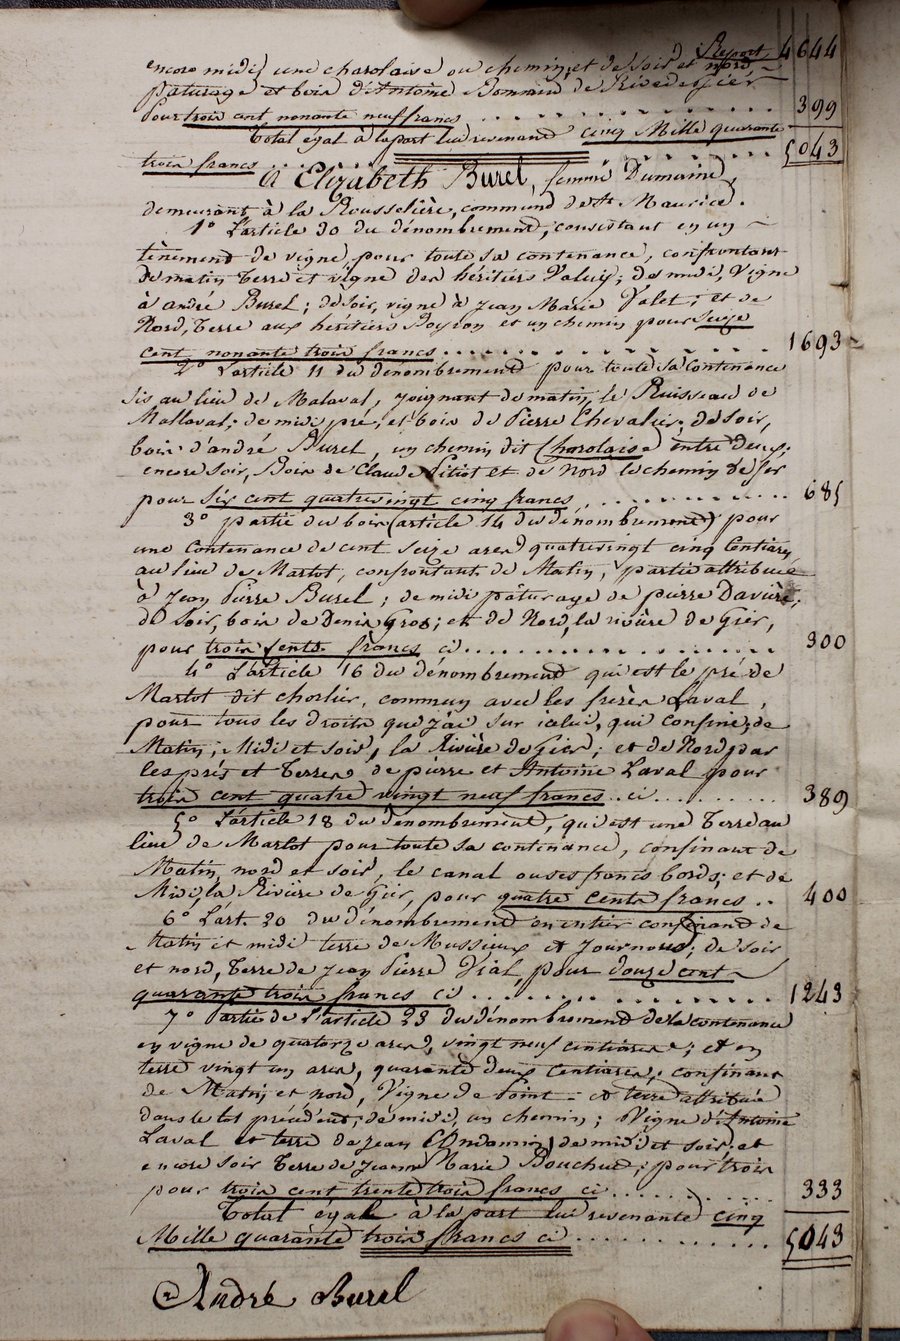 Report 4644
encore midi, une charolaise ou chemin, et de soir et nord
pâturage et bois d'Antoine Bonnand de Rivedegier
Pour trois cent nonante neuf francs . . . . . . . . . 399
Total égal à la part lui revenant cinq Mille quarante
trois francs . . . . . . . . . 5043
A Elizabeth Burel, femme Dumaine,
demeurant à la Rousselière, commune de St Maurice.
1° L'article 30 du dénombrement, consistant en un
tènement de vigne, pour toute sa contenance, confrontant
de matin Terre et vigne des héritiers Valuy; de midi, Vigne
à andré Burel; de soir, vigne à Jean Marie Valet; et de
Nord, Terre aux héritiers Boyron et un chemin pour seize
cent nonante trois francs . . . . . . . . . 1693
2° L'article 11 du dénombrement pour toute sa contenance
sis au lieu de Malaval, joignant de matin, le Ruisseau de
Mallaval; de midi pré, et bois de Pierre Chevalier; de soir,
bois d'andré Burel, un chemin dit Charolaise entre deux;
encore soir, Bois de Claude Pitiot et de Nord le chemin de fer
pour six cent quatrevingt cinq francs . . . . . . . . . 685
3° partie du bois (article 14 du dénombrement) pour
une Contenance de cent seize ares quatrevingt cinq Centiares
au lieu de Martot, confrontant de Matin, partie attribuée
à Jean Pierre Burel; de midi pâturage de pierre Davière;
de soir, bois de Denis Gros; et de Nord, la rivière de Gier,
pour trois cents francs ci . . . . . . . . . 300
4° L'article 16 du dénombrement qui est le pré de
Martot dit chorlier, commun avec les frères Laval,
pour tous les droits que j'ai sur icelui, qui confine, de
Matin, Midi et soir, la Rivière de Gier; et de Nord par
les prés et Terres de pierre et Antoine Laval pour
trois cent quatre vingt neuf francs . . ci . . . . . . . . . 389
5° L'article 18 du dénombrement, qui est une Terre au
lieu de Martot pour toute sa contenance, confinant de
Matin, nord et soir, le canal ou ses francs bords; et de
Midi, la Rivière de Gier, pour quatre cents francs . . 400
6° L'art. 20 du dénombrement en entier confinand de
Matin et midi terre de Messieurs et Journoud; de soir
et nord, Terre de Jean Pierre Vial, pour douze cent
quarante trois francs ci . . . . . . . . . 1243
7° Partie de l'article 23 du dénombrement de la contenance
en vigne de quatorze ares, vingt neuf centiares; et en
terre vingt un ares, quarante deux Centiares; confinant
de Matin et nord, Vigne de Point et terre attribuée
dans le lot précédent; de midi, un chemin; Vigne d'Antoine
Laval et terre de Jean Condamin, de midi et soir; et
encore soir Terre de Jeanne Marie Bouchut; pour trois
pour trois cent trente trois francs ci . . . . . . . . . 333
Total égal à la part lui revenante cinq
Mille quarante trois francs ci . . . . . . . . . 5043
André Burel